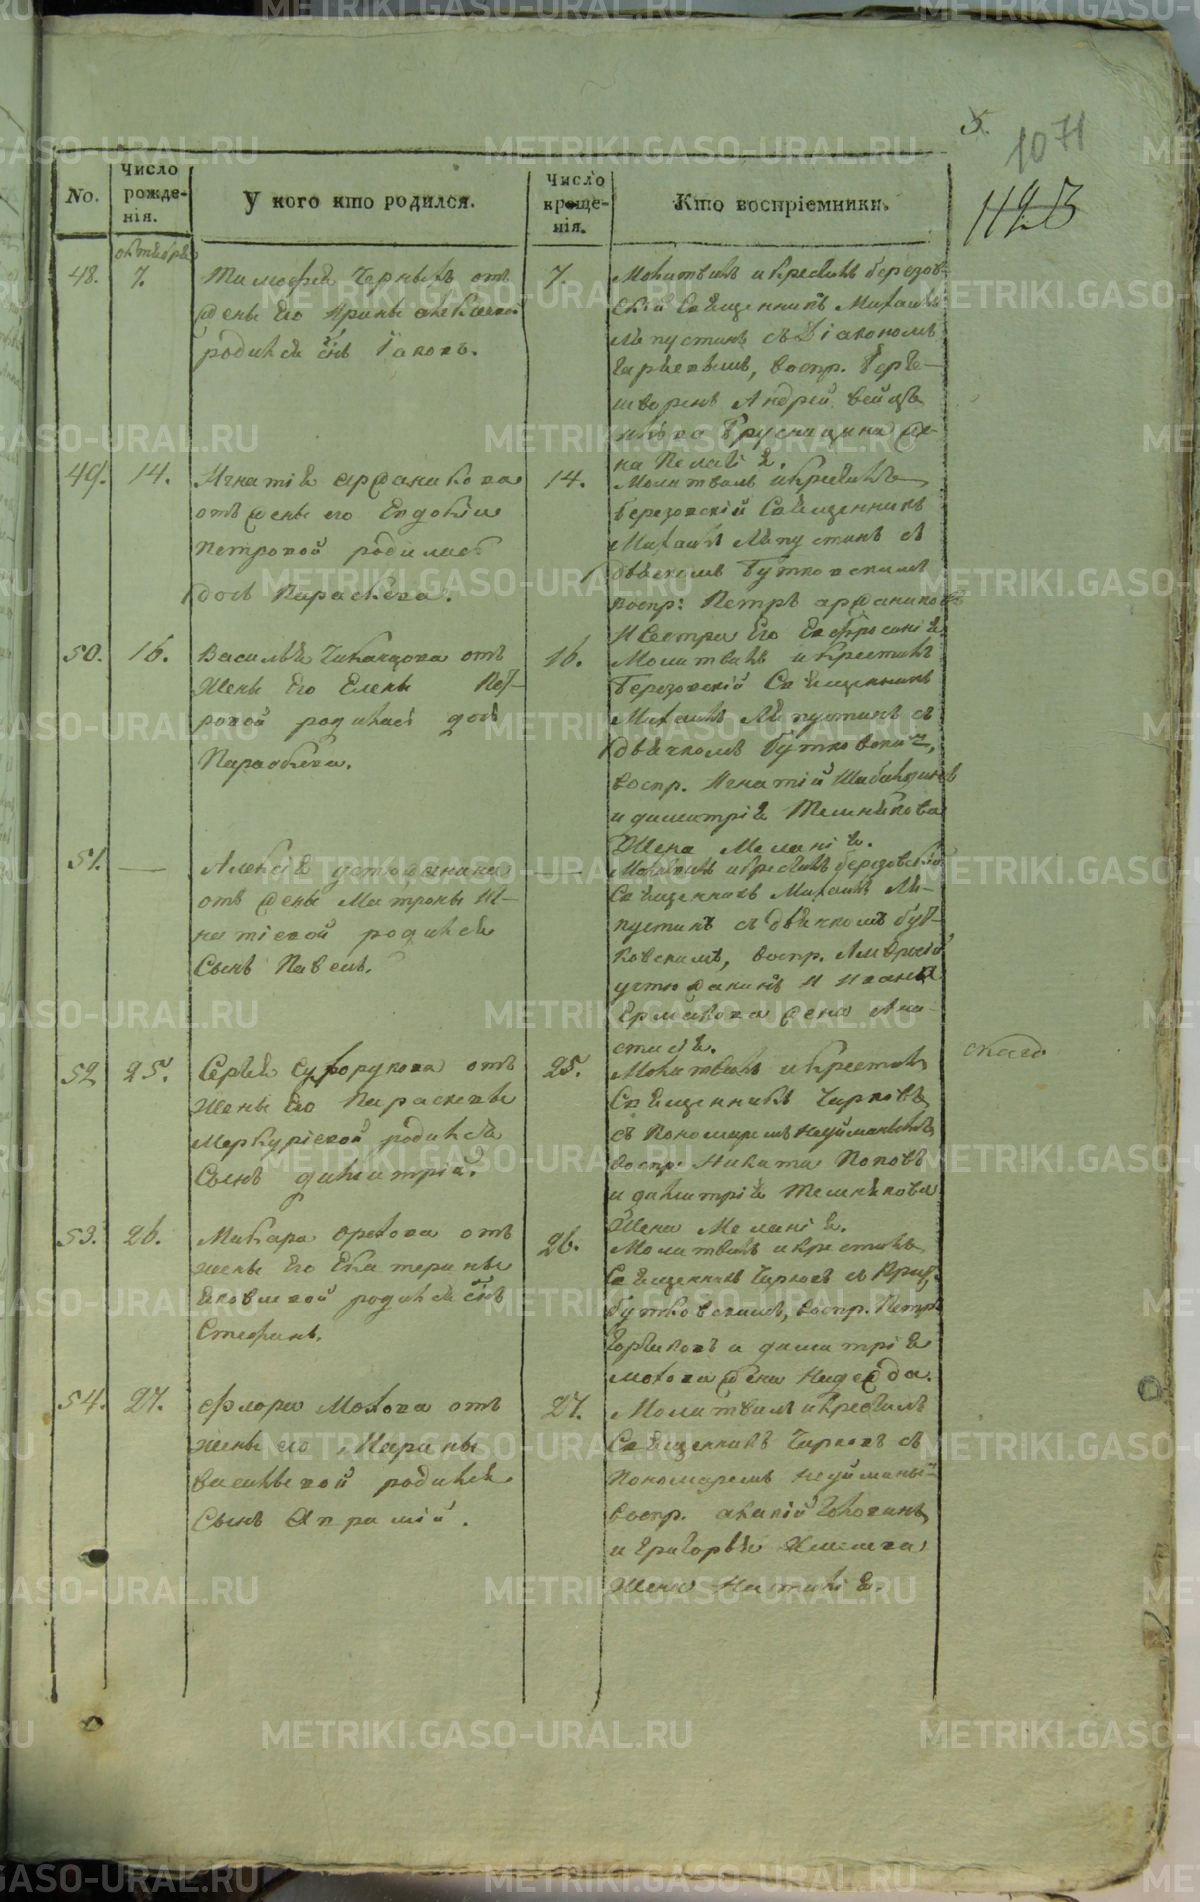 5.
1071
1123
No.
Число рожде-нія.
У кого кто родился.
Число креще-нія.
Кто воспріемники.
октября
48. 7.
Тимофея Черныхъ отъ
жены Его Ирины Алексеевой
родился сынъ Іаковъ.
7.
Молитвилъ и крестилъ березов-
скій Священникъ Михаилъ
Ляпустинъ съ Діакономъ
воспр.
Андрей
на Пелагія.
49. 14.
Игнатія аржанникова
отъ жены его Евдокіи
Петровой родилась
дочь Параскева.
14.
Молитвилъ и крестилъ
березовскій Священникъ
Михаилъ Ляпустинъ съ
дьячкомъ бутковскимъ
воспр: Петръ аржанниковъ
и Сестра Его Евфросинія.
50. 16.
Василья отъ
жены Его Елены Пет-
ровой родилась дочь
Параскева.
16.
Молитвилъ и крестилъ
Березовскій Священникъ
Михаилъ Ляпустинъ съ
дьячкомъ бутковски,
воспр. Игнатій
и димитрія Мельникова
жена Меланія.
51. —
Алексія устюжанина
отъ жены Матроны Иг-
натіевой родился
Сынъ Павелъ.
—
Молитвилъ и крестилъ березовскій
Священникъ Михаилъ Ля-
пустинъ съ дьячкомъ бут-
ковскимъ, воспр. Амвросій
устюжанинъ и Ивана
Ермакова жена Ана-
стасія.
52 25.
Сергія Суфорукова отъ
жены Его Параскевы
Меркуріевой родился
Сынъ димитрій.
25.
Молитвилъ и крестилъ
Священникъ Чирковъ
съ Пономаремъ
воспр. Никита Поповъ
и димитрія Мельникова
жена Меланія.
53. 26.
Макара Орехова отъ
жены Его Екатерины
Яковлевой родился сынъ
Стефанъ.
26.
Молитвилъ и крестилъ
Священникъ Чирковъ съ
бутковскимъ, воспр. Петръ
и димитрія
Мохова жена Надежда.
54. 27.
Флора Мохова отъ
жены его Марины
Васильевой родился
Сынъ Авраамій.
27.
Молитвилъ и крестилъ
Священникъ Чирковъ съ
Пономаремъ
воспр.
и Григорья
жена Наталія.
METRIKI.GASO-URAL.RU